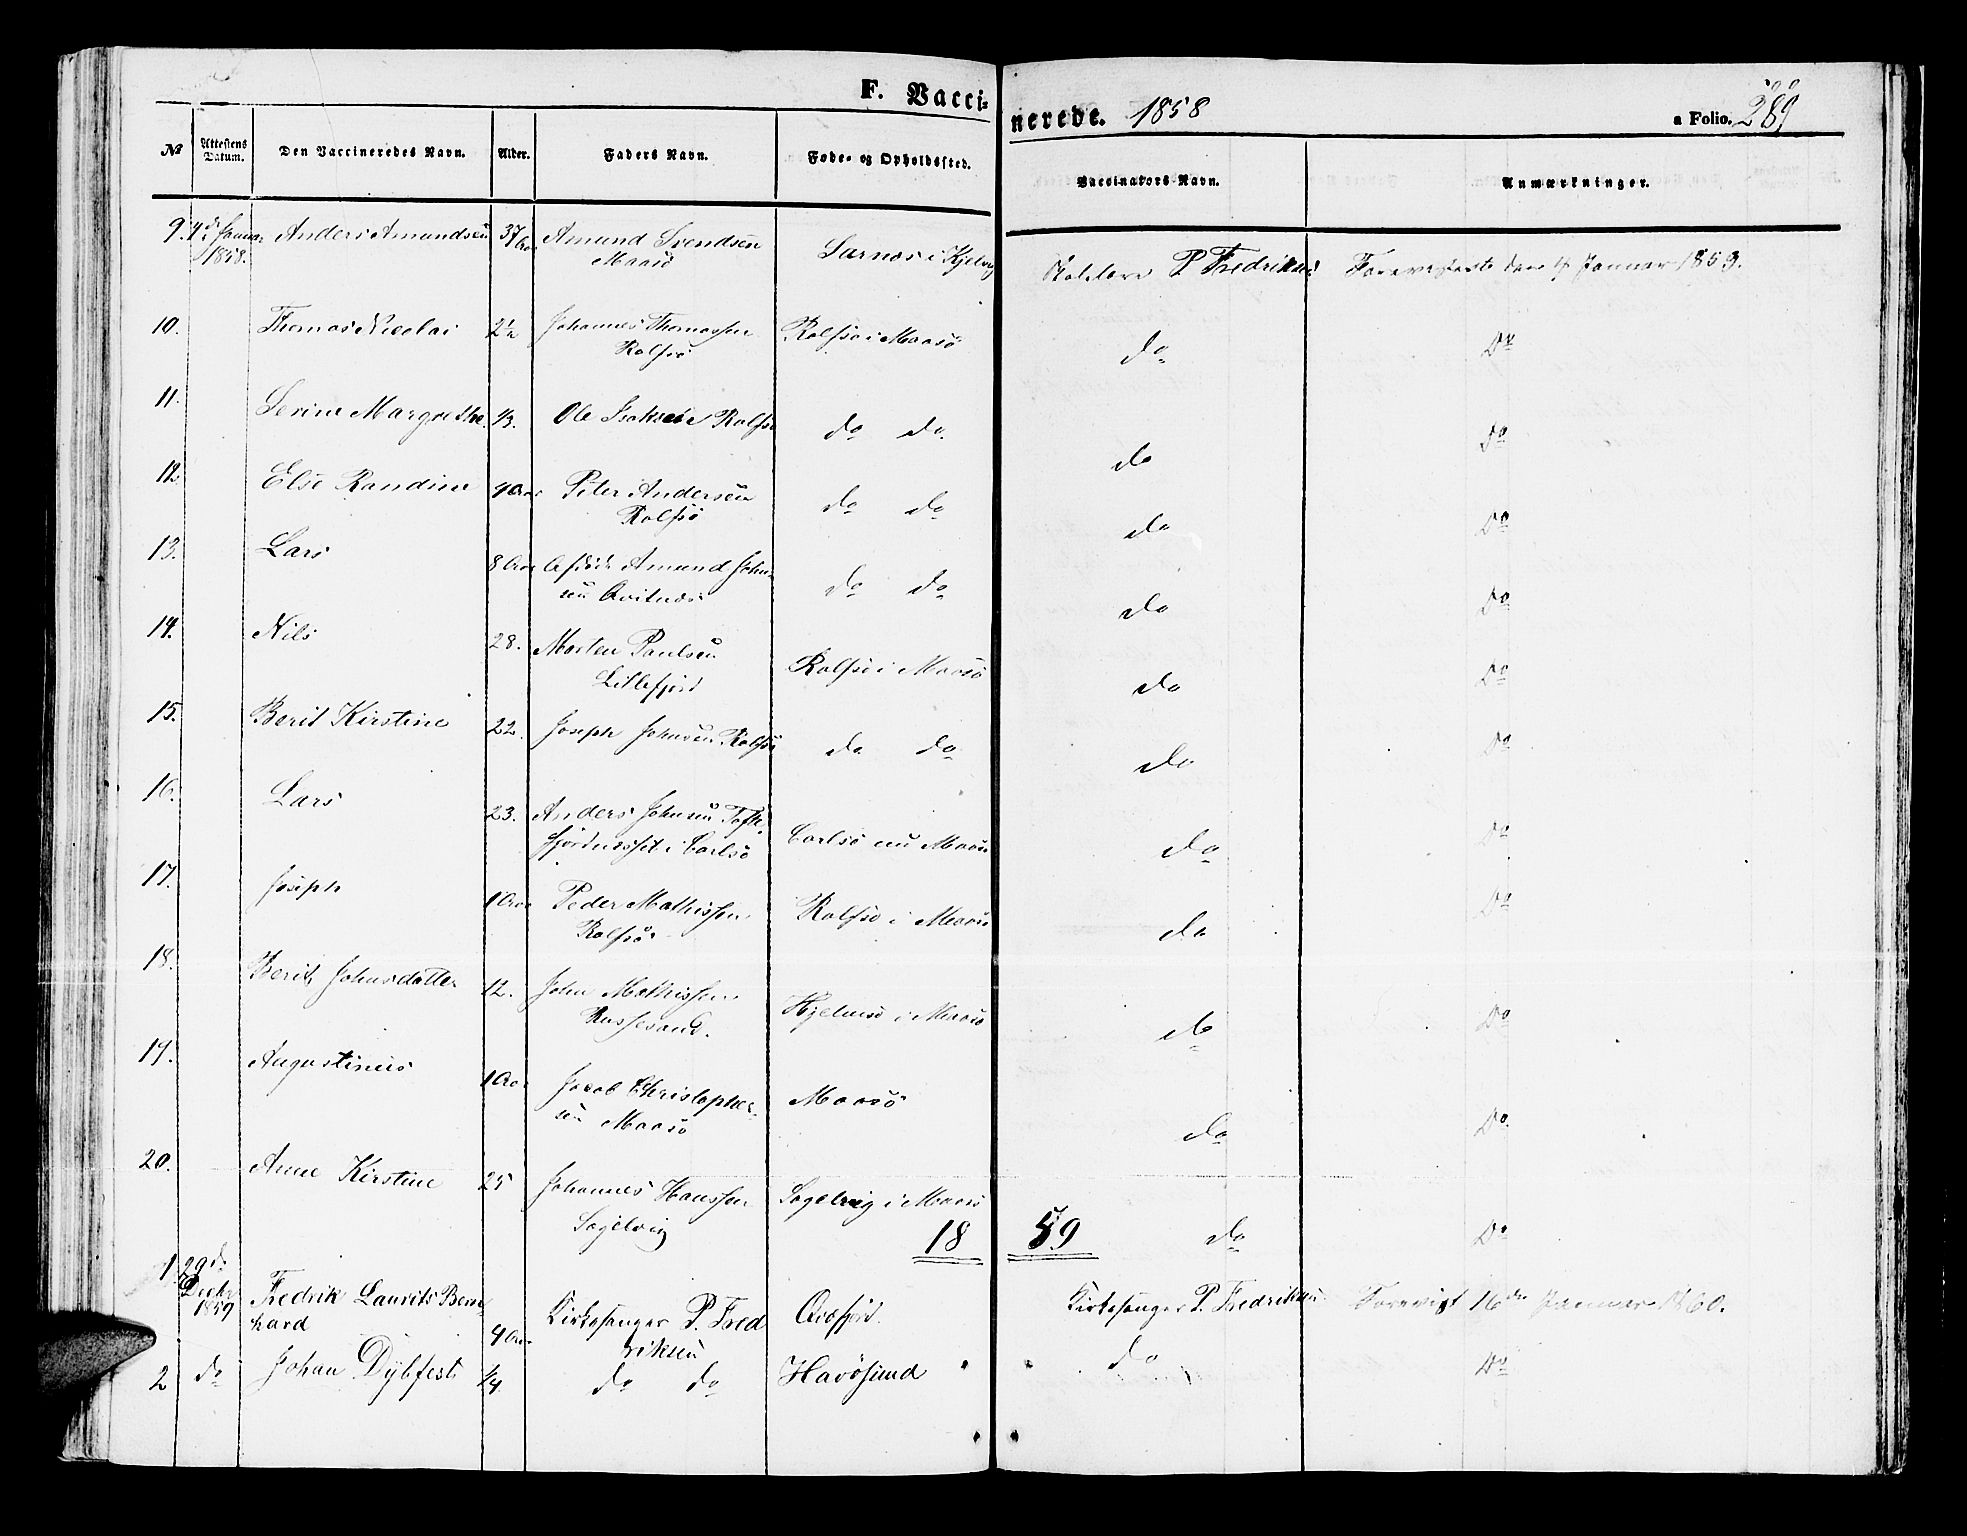 F. Vacci=
nerede. 1858
a Folio. 289
№ Attestens Datum. Den Vaccineredes Navn. Alder. Faders Navn. Føde- og Opholdssted. Vaccinators Navn. Anmærkninger.
9. 4de Januar 1858. Anders Amundsen 37 Aar Amund Svendsen Maasö Sarnes i Kjelvig Skolelærer P. Fredriksen Forevistes den 4 Januar 1859.
10. Thomas Nicolai 2½ Johannes Thomassen Rolfsö Rolfsö i Maasö do Do
11. Serine Margrethe ⅓. Ole Isaksen Rolfsö do do do Do
12 Else Randine 4 Aar Peter Andersen Rolfsö do do do Do
13. Lars 8 Aar Afdöde Amund John= sen do do do Do
14. Nils 28. Morten Paulsen Lillefjord Rolfsö i Maasö do Do
15. Berit Kirstine 22. Joseph Johnsen Rolfsö do do do Do
16. Lars 23. Anders Johnsen Tofte= fjord i Carlsö Carlsö nu Maasö do Do
17. Joseph 1 Aar Peder Mathissen Rolfsö Rolfsö i Maasö do Do
18. Berith Johnsdatter 12. John Mathissen Russesund. Hjelmsö i Maasö do Do
19. Augustinius 1 Aar Jacob Christopher= sen Maasö Maasö do Do
20. Anne Kirstine 25 Johannes Hanssen Sogelvig Sogelvig i Maasö do Do
18 59
1. 29de Decbr 1859 Fredrik Laurits Bern= hard 4 Aar Kirkesanger P. Fred riksen Qvalfjord. Kirkesanger P. Fredriksen Forevist 16de Januar 1860.
2 do Johan Dybfest ¼ do do Havösund do Do